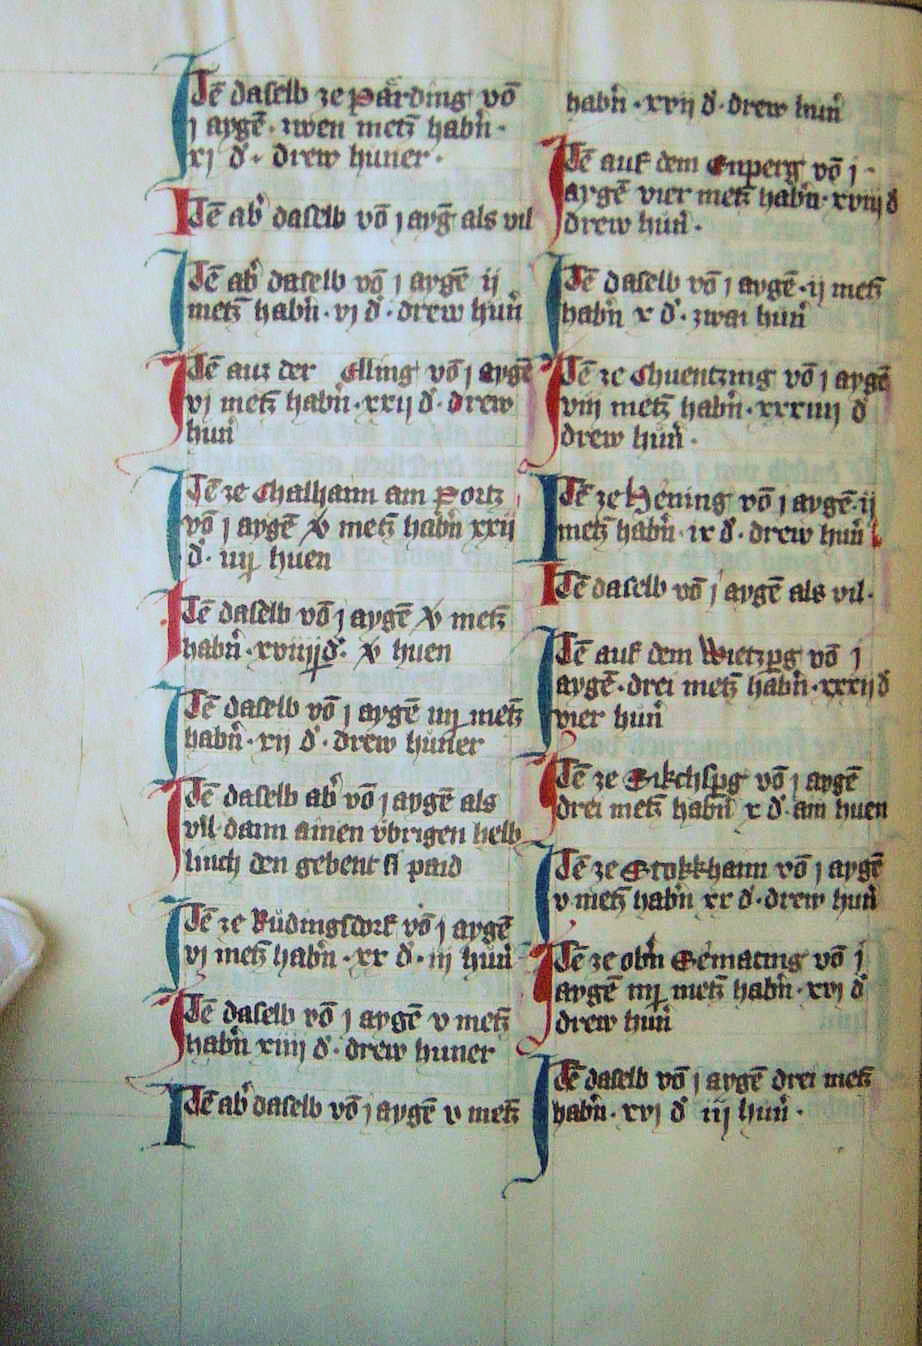 Itē daselb ze Parding vō
j aygē · zwen metz̄ habn̄ ·
xj d᷎ · drew huner ·
Itē ab᷎ daselb vō j ayḡ als vil
Itē ab᷎ daselb vō j aygē ij
metz̄ habn̄ · vj d᷎ · drew hun᷎
Itē auz der Elling vō j aygē
vj metz̄ habn̄ · xxij d᷎ · drew
hun᷎
Itē ze Chalhaim am Portz
vō j aygē v metz̄ habn̄ xxij
d᷎ · iiij huen
Itē daselb vō j aygē v metz̄
habn̄ · xviiij d᷎ · v huen
Itē daselb vō j aygē iiij metz̄
habn̄ · xij d᷎ · drew huner
Itē daselb ab᷎ vō j aygē als
vil dann ainen vbrigen helb
linch den gebent si paid
Itē ze Rüdingsdorf vō j aygē
vj metz̄ habn̄ · xx d᷎ · iij hün᷎
Itē daselb vō j aygē v metz̄
habn̄ xiiij d᷎ · drew huner
Itē ab᷎ daselb vō j aygē v metz̄
habn̄ · xvij d᷎ · drew hun᷎
Itē auf dem Enperg vō j ·
aygē vier metz̄ habn̄ · xviij d᷎
drew hun᷎ ·
Itē daselb vō j aygē · ij metz̄
habn̄ x d᷎ · zwai hun᷎
Itē ze Chuentzing vō j aygē
viij metz̄ habn̄ · xxxiiij d᷎
drew hun᷎ ·
Itē ze Hēning vō j aygē · ij
metz̄ habn̄ · ix d᷎ · drew hun᷎
Itē daselb vō j aygē als vil ·
Itē auf dem Wietzpg vō j
aygē · drei metz̄ habn̄ · xxxij d᷎
vier hun᷎
Itē ze Sikchspg vō j aygē
drei metz̄ habn̄ x d᷎ · ain huen
Itē ze Stokkhaim vō j aygē
v metz̄ habn̄ xx d᷎ · drew hun᷎
Itē ze obn̄ Gēmating vō j
aygē iiij metz̄ habn̄ · xvj d᷎
drew hun᷎
Itē daselb vō j aygē drei metz̄
habn̄ · xvj d᷎ iij hun᷎ ·